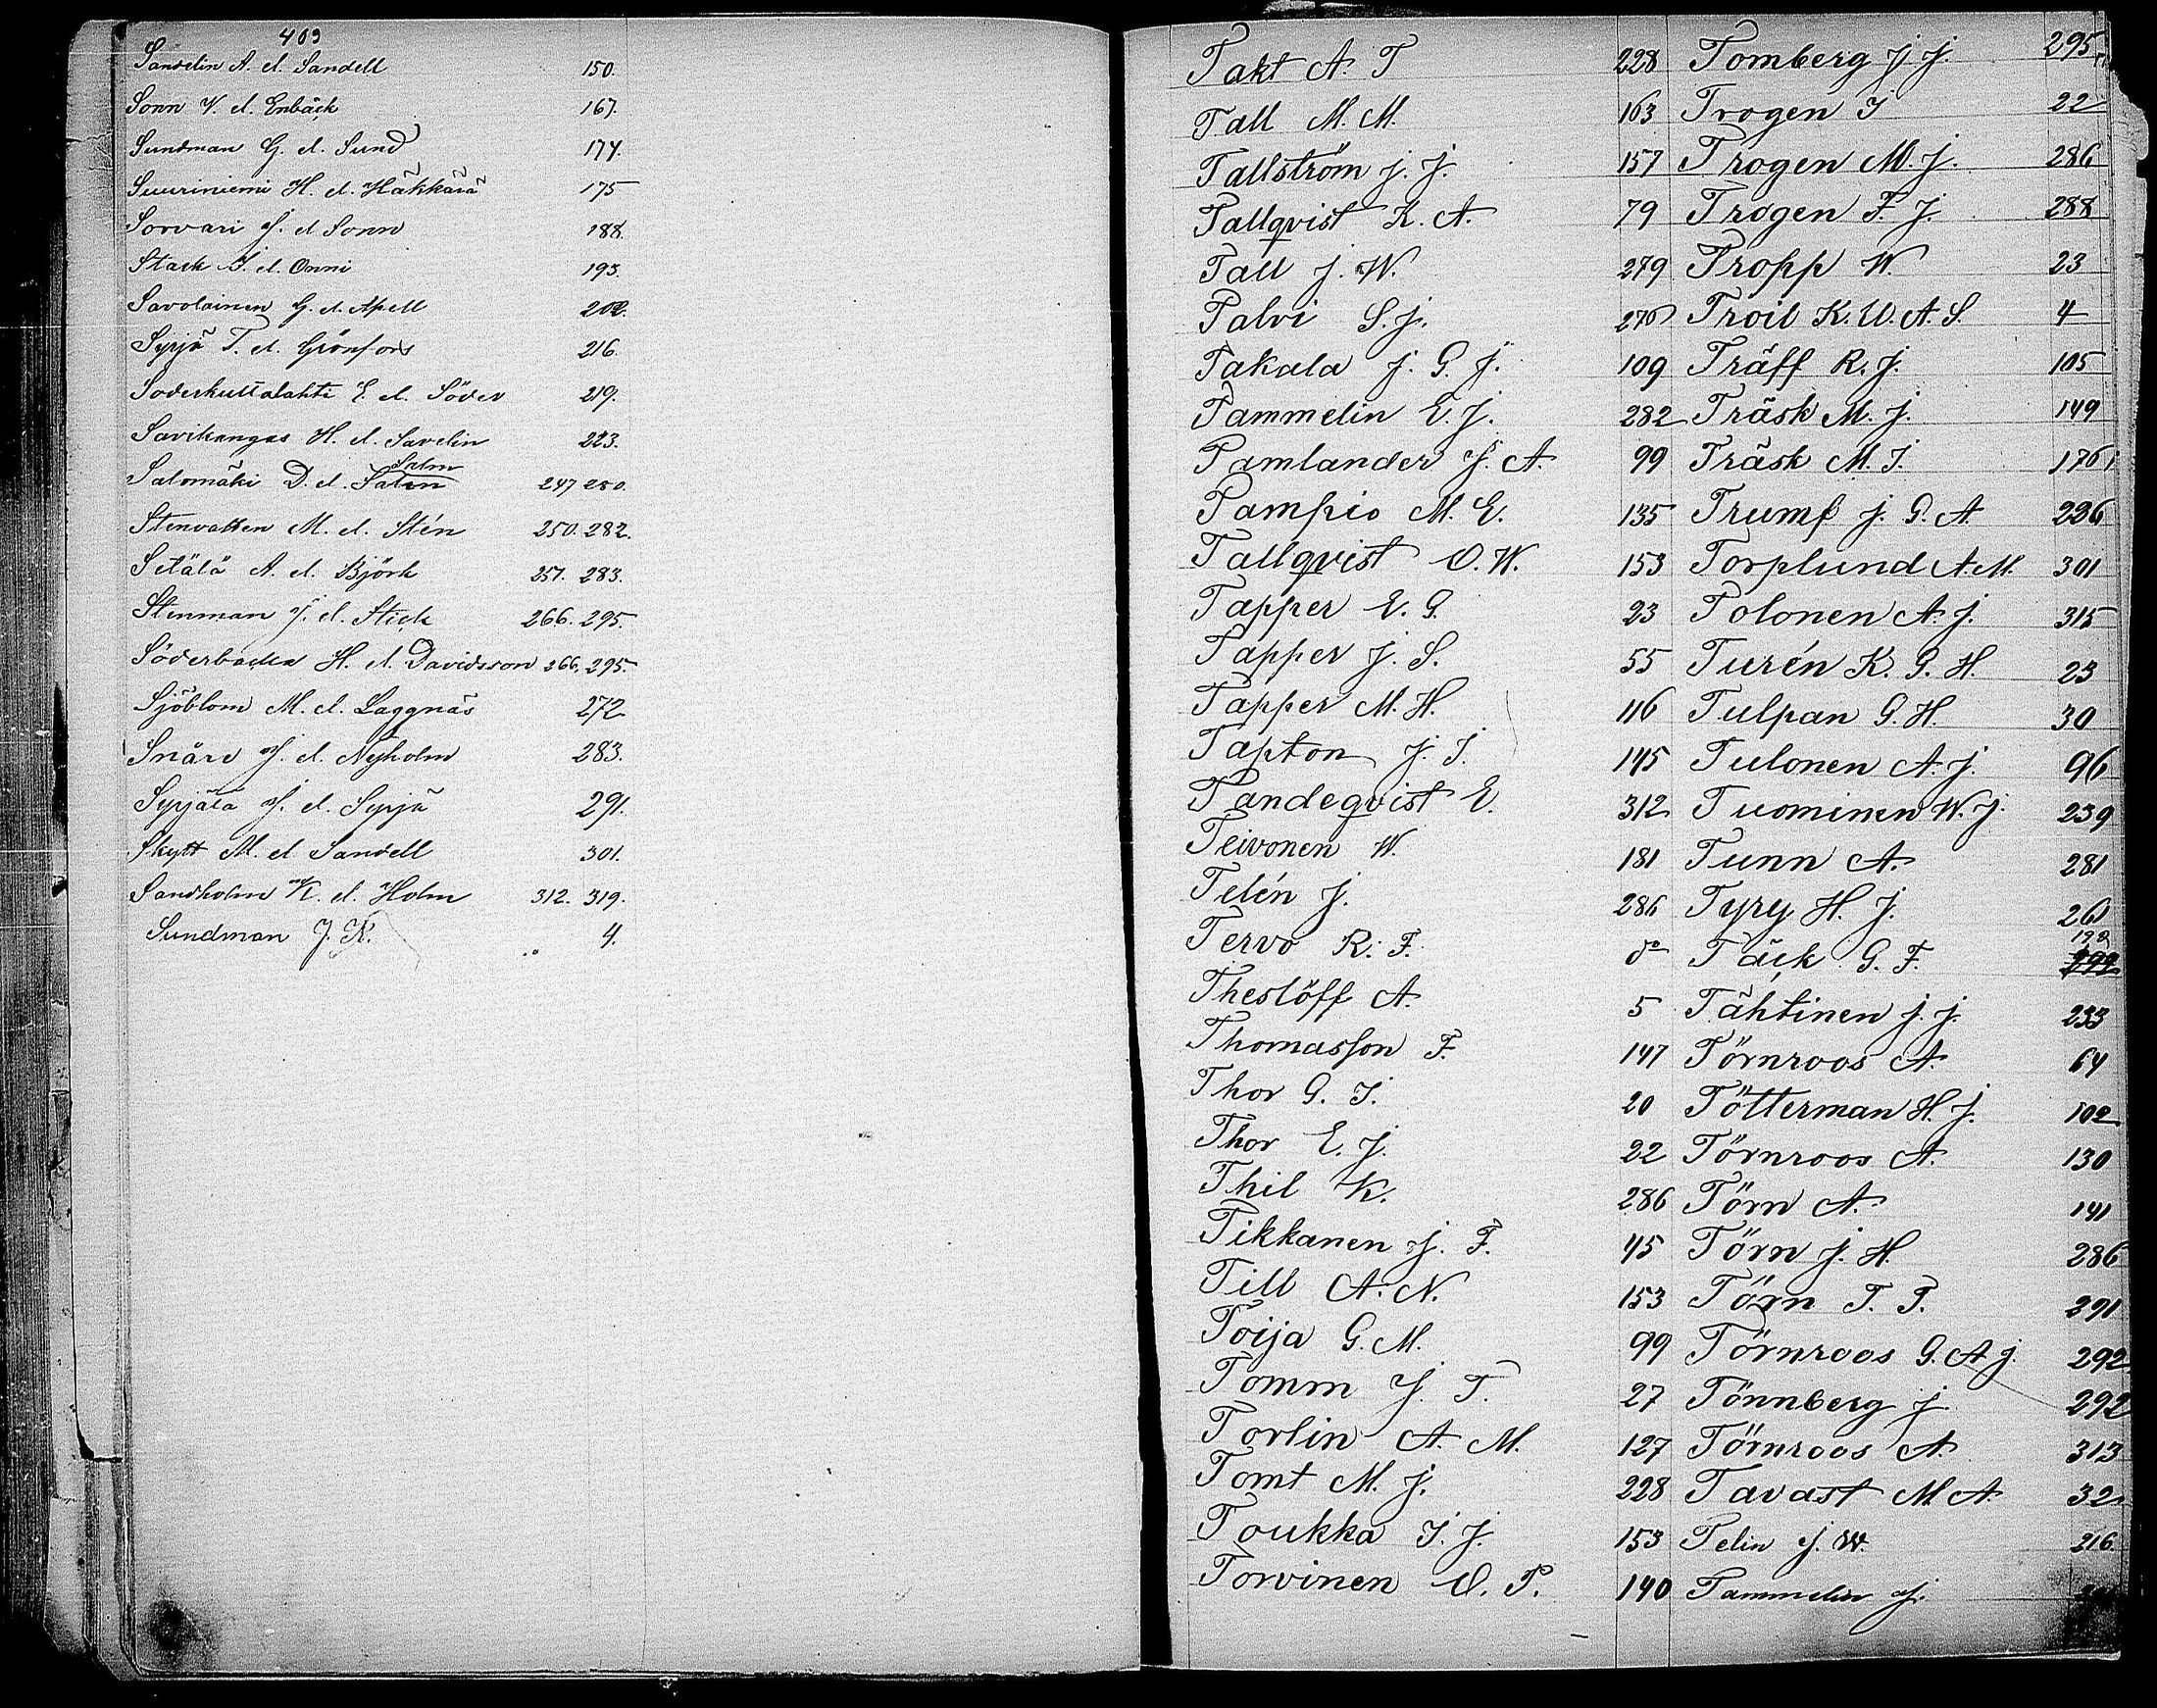 403
Sandelin A. el. Sandell 150.
Sonn V. el. Enbäck 167.
Sundman G. el. Sund 174.
Suuriniemi H. el. Häkkärä 175
Sorvari J. el Sonn 188.
Stark J. el. Onni 195.
Savolainen G. el. Apell 202.
Syrjä T. el. Grönfors 216.
Söderkultalahti E. el. Söder 219.
Savikangas H. el. Savelin 223.
Salm
Salomäki D. el. Salen 247 280.
Stenvatten M. el. Stén 250. 282.
Setälä A. el. Björk 257. 283.
Stenman J. el. Stick 266. 295.
Söderbacka H. el. Davidsson 266. 295.
Sjöblom M. el. Laggnäs 272
Snäre J. el. Nyholm 283.
Syrjälä J. el. Syrjä 291.
Skytt M. el. Sandell 301.
Sandholm K. el. Holm 312. 319.
Sundman J. K. 4.
Takt A. T 228
Tall M. M. 163
Tallström J. J. 157
Tallqvist K. A. 79
Tall J. W. 279
Talvi S. J. 276
Takala J. G. J. 109
Tammelin E. J. 282
Tamlander J. A. 99
Tampio M. E. 135
Tallqvist O. W. 153
Tapper E. G. 23
Tapper J. S. 55
Tapper M. H. 116
Tapton J. J. 145
Tandeqvist E. 312
Teivonen W. 181
Telén J. 286
Tervo R. F. d:o
Theslöff A. 5
Thomasson F. 147
Thor G. J. 20
Thor E. J. 22
Thil K. 286
Tikkanen J. F. 45
Till A. N. 153
Toija G. M. 99
Tomm J. T. 27
Torlin A. M. 127
Tomt M. J. 228
Toukka J. J. 153
Torvinen O. P. 140
Tomberg J. J. 295
Trogen J 22
Trogen M. J. 286
Trogen F. J. 288
Tropp W. 23
Troil K. U. A. S. 4
Träff R. J. 105
Träsk M. J. 149
Träsk M. J. 176
Trumf J. G. A. 226
Torplund A. M. 301
Tolonen A. J. 315
Turén K. G. H. 23
Tulpan G. H. 30
Tulonen A. J. 96
Tuominen W. J. 239
Tunn A. 281
Tyry H. J. 261
198
Täck G. F.
Tähtinen J. J. 233
Törnroos A. 64
Tötterman H. J. 102
Törnroos A. 130
Törn A. 141
Törn J. H. 286
Törn T. T. 291
Törnroos G. A. J. 292
Tönnberg J. 292
Törnroos A. 313
Tavast M A. 32
Telin J. W. 216.
Tammelin J.